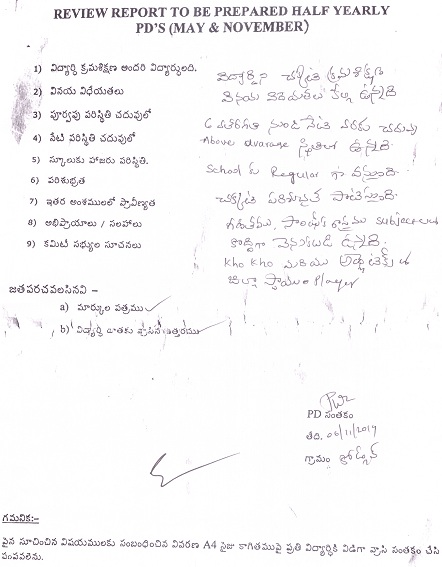 REVIEW REPORT TO BE PREPARED HALF YEARLY
PD'S (MAY & NOVEMBER)
1) విద్యార్థి క్రమశిక్షణ అందరి విద్యార్థులది.
2) వినయ విధేయతలు
3) పూర్వపు పరిస్థితి చదువులో
4) నేటి పరిస్థితి చదువులో
5) స్కూలుకు హాజరు పరిస్థితి.
6) పరిశుభ్రత
7) ఇతర అంశములలో ప్రావీణ్యత
8) అభిప్రాయాలు / సలహాలు
9) కమిటీ సభ్యుల సూచనలు
చక్కని క్రమశిక్షణ
వినయ విధేయతలు కల్గి ఉన్నాది
6 వతరగతి నుండి నేటి వరకు చదువు
Above avarage స్థితిలో ఉన్నాది.
School కు Regular గా వస్తుంది.
చక్కని పరిశుభ్రత పాటిస్తుంది.
గణితము, సాంఘీక శాస్త్రము subjects
కొద్దిగా వెనుకబడి ఉన్నాది.
Kho Kho మరియు
జిల్లా స్థాయి Player
జతపరచవలసినవి –
a) మార్కుల పత్రము
b) విద్యార్థి దాతకు వ్రాసిన ఉత్తరము
PD సంతకం
తేది. 06/11/2014
గ్రామం.
గమనిక:-
పైన సూచించిన విషయములకు సంబంధించిన వివరణ A4 సైజు కాగితముపై ప్రతి విద్యార్థికి విడిగా వ్రాసి సంతకం చేసి
పంపవలెను.